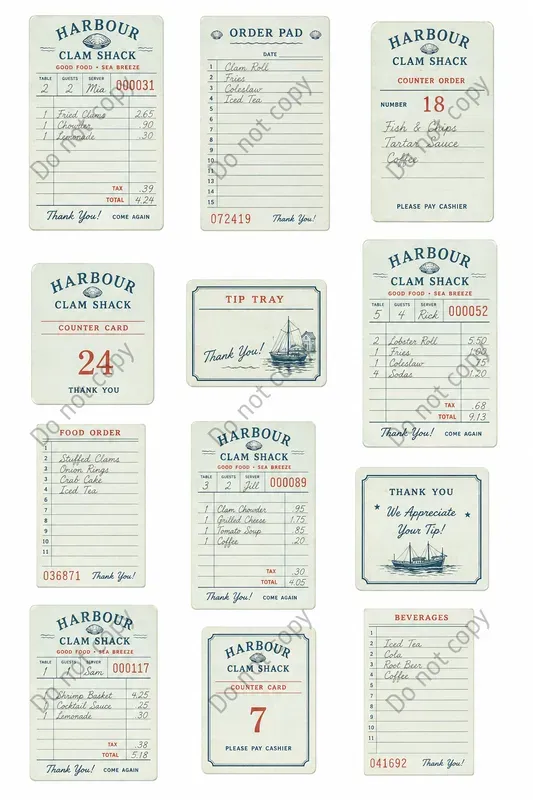 HARBOUR
CLAM SHACK
GOOD FOOD • SEA BREEZE
TABLE GUESTS SERVER
2 2 Mia 000031
1 Fried Clams 2.65
1 Chowder .90
1 Lemonade .30
TAX .39
TOTAL 4.24
Thank You! COME AGAIN
ORDER PAD
DATE
1 Clam Roll
2 Fries
3 Coleslaw
4 Iced Tea
5
6
7
8
9
10
11
12
13
14
15
072419 Thank You!
HARBOUR
CLAM SHACK
COUNTER ORDER
NUMBER 18
Fish & Chips
Tartar Sauce
Coffee
PLEASE PAY CASHIER
HARBOUR
CLAM SHACK
COUNTER CARD
24
THANK YOU
TIP TRAY
Thank You!
HARBOUR
CLAM SHACK
GOOD FOOD • SEA BREEZE
TABLE GUESTS SERVER
5 4 Rick 000052
2 Lobster Roll 5.50
1 Fries
1 Coleslaw
4 Sodas 1.20
TAX .68
TOTAL 9.13
Thank You! COME AGAIN
FOOD ORDER
1
2 Stuffed Clams
3 Onion Rings
3 Crab Cake
4 Iced Tea
6
7
8
9
10
11
036871 Thank You!
HARBOUR
CLAM SHACK
GOOD FOOD • SEA BREEZE
TABLE GUESTS SERVER
3 2 Jill 000089
1 Clam Chowder .95
1 Grilled Cheese 1.75
1 Tomato Soup .85
1 Coffee .20
TAX .30
TOTAL 4.05
Thank You! COME AGAIN
THANK YOU
We Appreciate
Your Tip!
HARBOUR
CLAM SHACK
GOOD FOOD • SEA BREEZE
TABLE GUESTS SERVER
1 Sam 000117
Shrimp Basket 4.25
Cocktail Sauce 25
1 Lemonade .30
TAX .38
TOTAL 5.18
Thank You! COME AGAIN
HARBOUR
CLAM SHACK
COUNTER CARD
7
PLEASE PAY CASHIER
BEVERAGES
1
2 Iced Tea
2 Cola
3 Root Beer
4 Coffee
6
7
8
9
10
11
041692 Thank You!
Do not copy
Do not copy
Do not copy
Do not copy
Do not copy
Do not copy
Do not copy
Do not copy
Do not copy